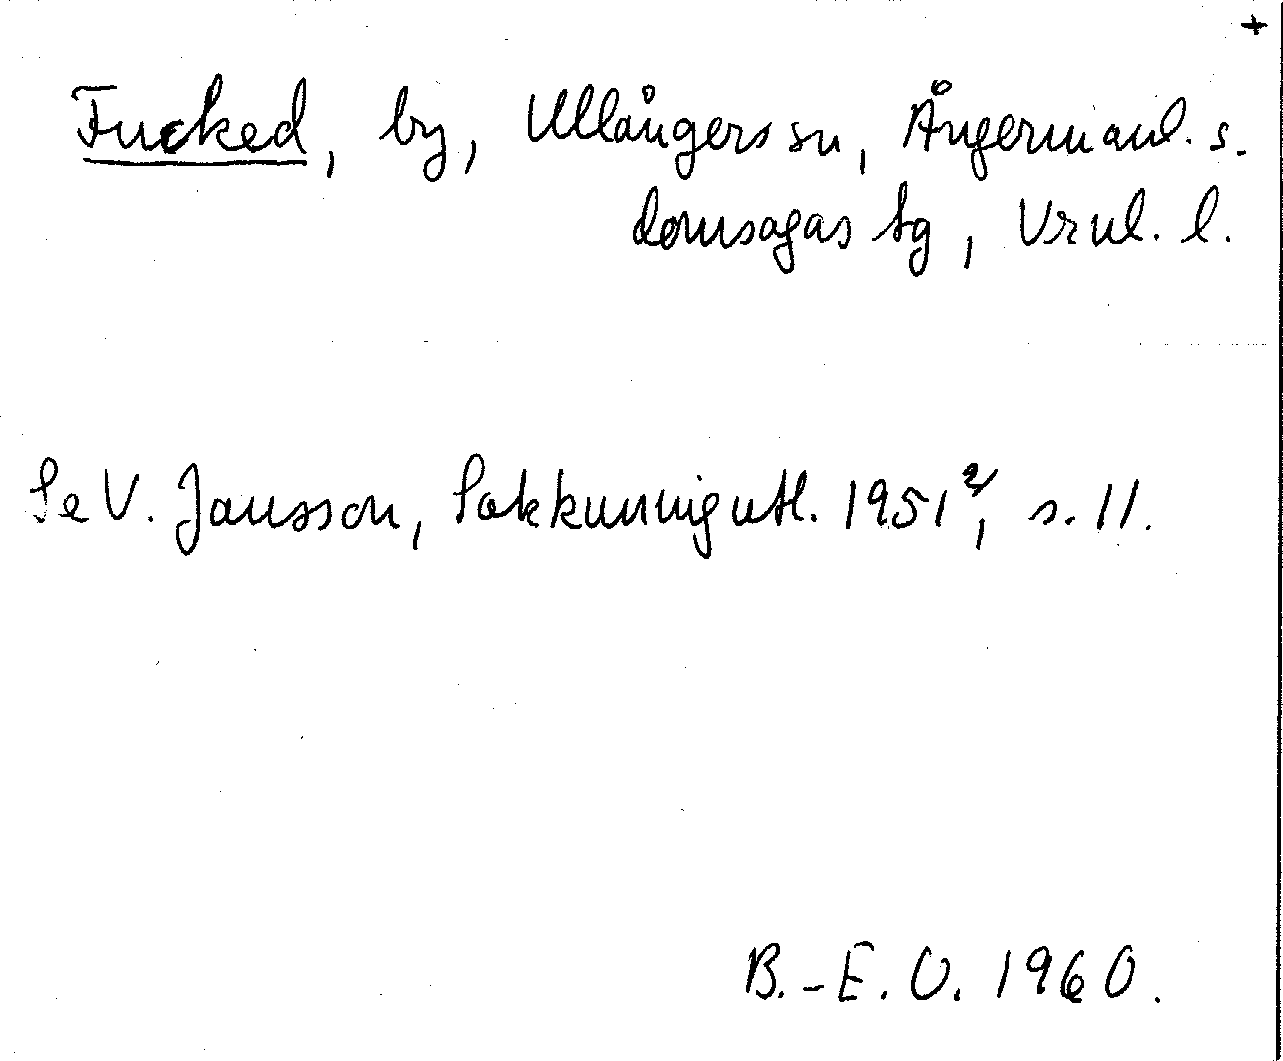 +
Fucked, by, Ullångers sn, Ångermanl. s.
domsagas tg, Vrnl. l.
Se V. Jansson, Sakkunnigutl. 1951 2/, s. 11.
B.-E. O. 1960.